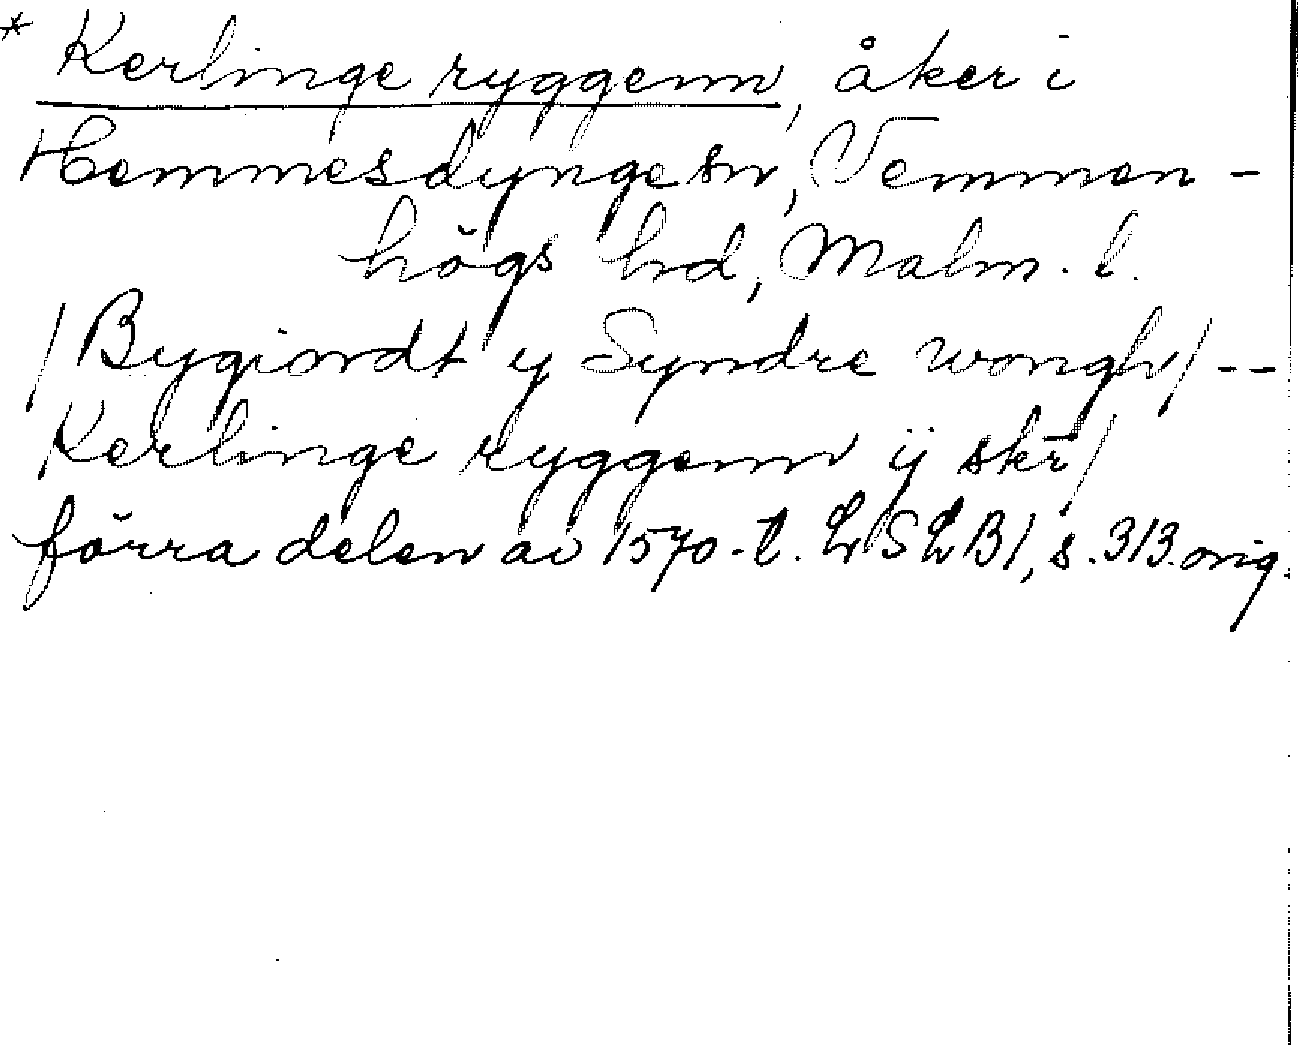 * Kerlinge ryggenn, åker i
Hemmesdynge sn, Vemmen-
högs hd, Malm. l.
/Bygiordt y Syndre wongh/ --
Kerlinge ryggenn ÿ skr/
förra delen av 1570-t. LSLB1, s. 313. orig.